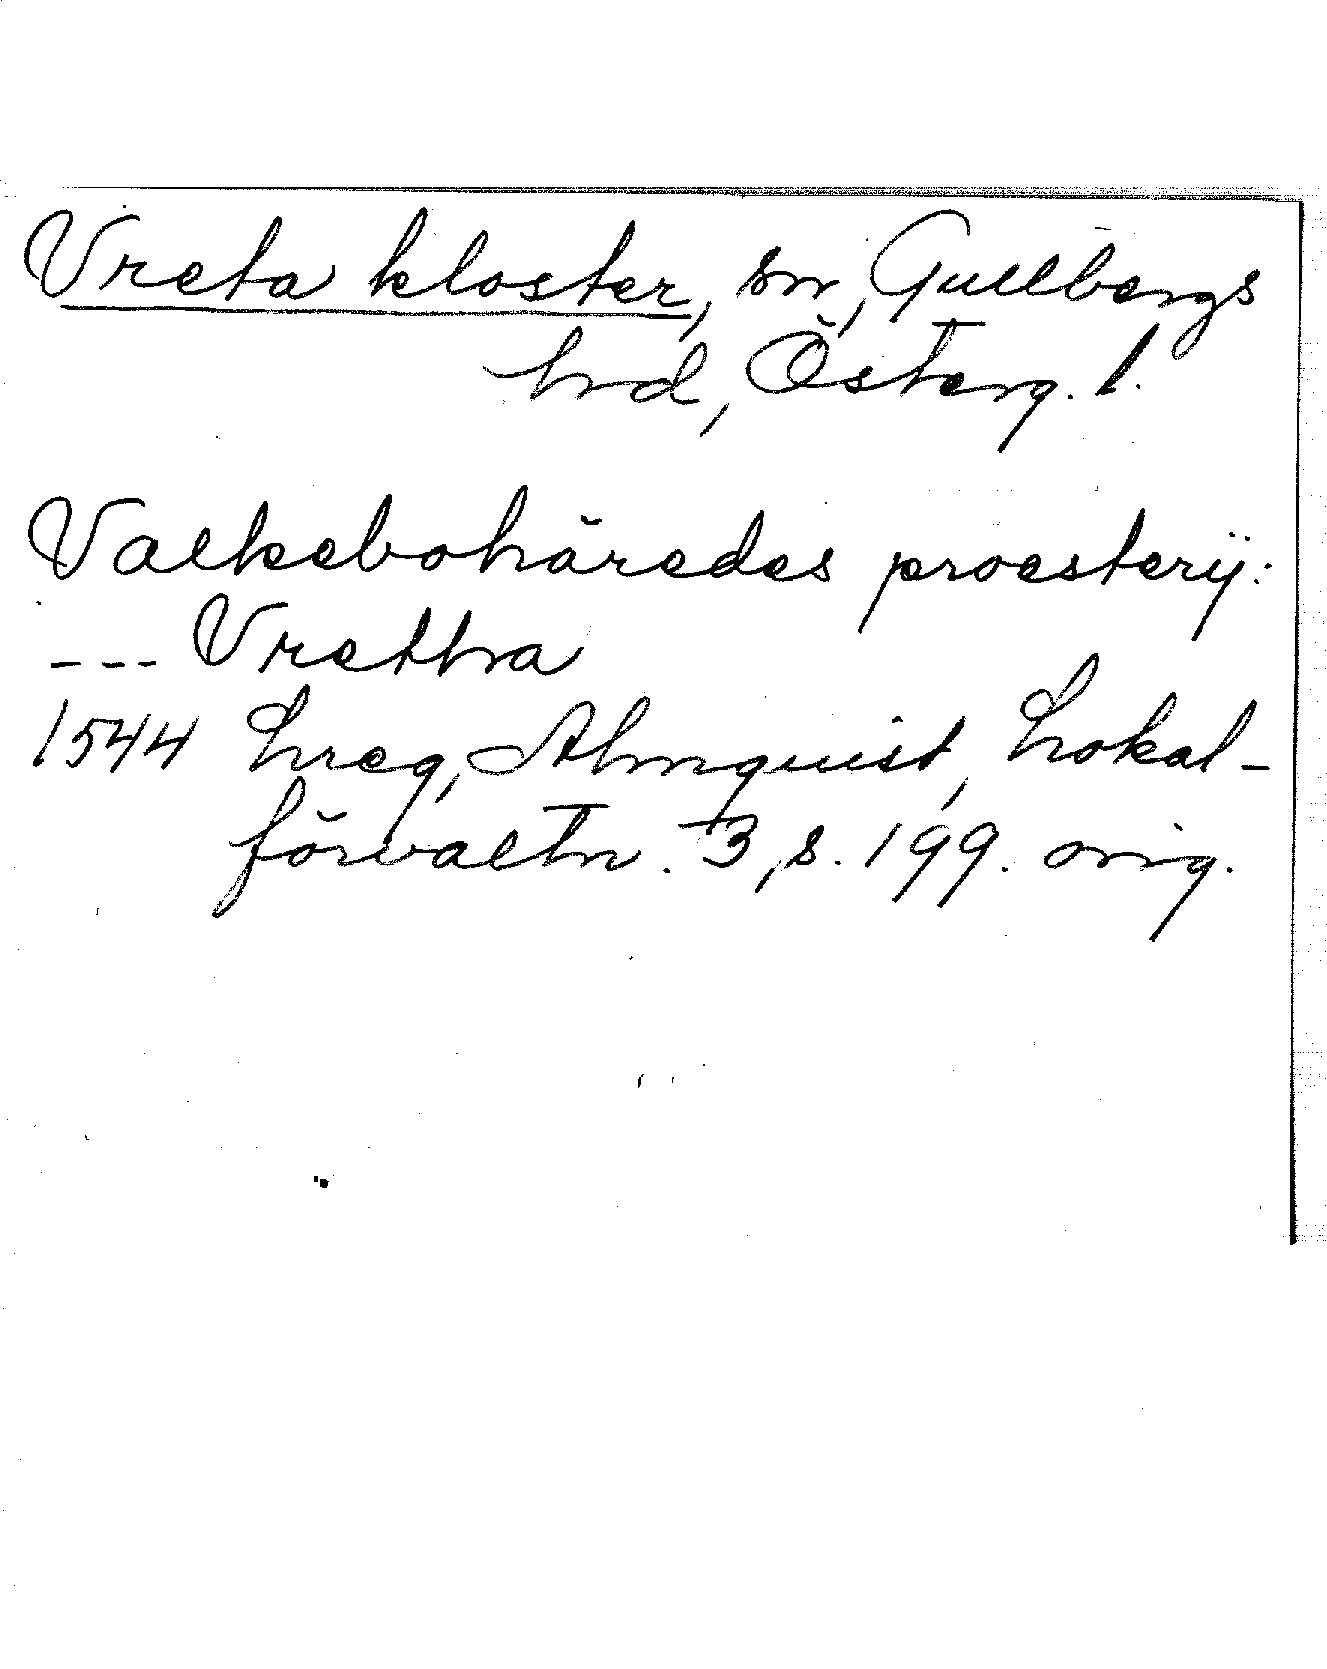 Vreta kloster, sn, Gullbergs
hrd, Österg. l.
Valkebohäredes proesterij:
--- Vretha
1544 Lreg, Almquist, Lokal-
förvaltn. 3, s. 199. orig.